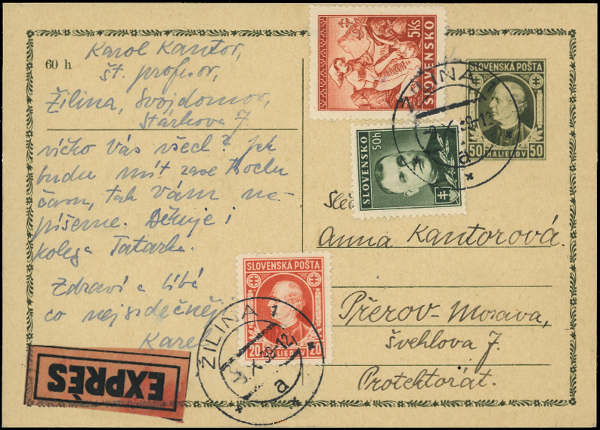 60 h
Karol Kantor,
št. profesor,
Žilina, Svojdomov,
Stárkova 7
všecko Vás všech? Jak
budu mít zase trochu
času, tak Vám na-
píšeme. Děkuje i
kolega Tatarka.
Zdraví a líbá
co nejsrdečněji
Karel
EXPRÈS
5Ks
SLOVENSKO
50h
SLOVENSKO
SLOVENSKÁ POŠTA
50 HALIEROV 50
ŽILINA 1
a
Anna Kantorová.
Přerov - Morava,
Švehlova 7.
Protektorát.
SLOVENSKÁ POŠTA
20 20
ŽILINA 1
a